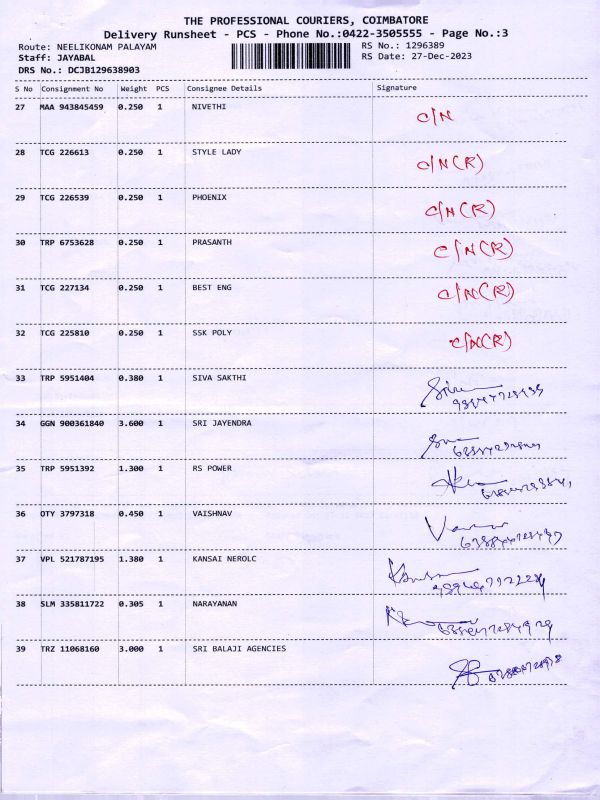 THE PROFESSIONAL COURIERS, COIMBATORE
Delivery Runsheet - PCS - Phone No.:0422-3505555 - Page No.:3
Route: NEELIKONAM PALAYAM RS No.: 1296389
Staff: JAYABAL RS Date: 27-Dec-2023
DRS No.: DCJB129638903
S No Consignment No Weight PCS Consignee Details Signature
27 MAA 943845459 0.250 1 NIVETHI C/N
28 TCG 226613 0.250 1 STYLE LADY C/N(R)
29 TCG 226539 0.250 1 PHOENIX C/N(R)
30 TRP 6753628 0.250 1 PRASANTH C/N(R)
31 TCG 227134 0.250 1 BEST ENG C/N(R)
32 TCG 225810 0.250 1 SSK POLY C/N(R)
33 TRP 5951404 0.380 1 SIVA SAKTHI
34 GGN 900361840 3.600 1 SRI JAYENDRA
35 TRP 5951392 1.300 1 RS POWER
36 OTY 3797318 0.450 1 VAISHNAV
37 VPL 521787195 1.380 1 KANSAI NEROLC
38 SLM 335811722 0.305 1 NARAYANAN
39 TRZ 11068160 3.000 1 SRI BALAJI AGENCIES